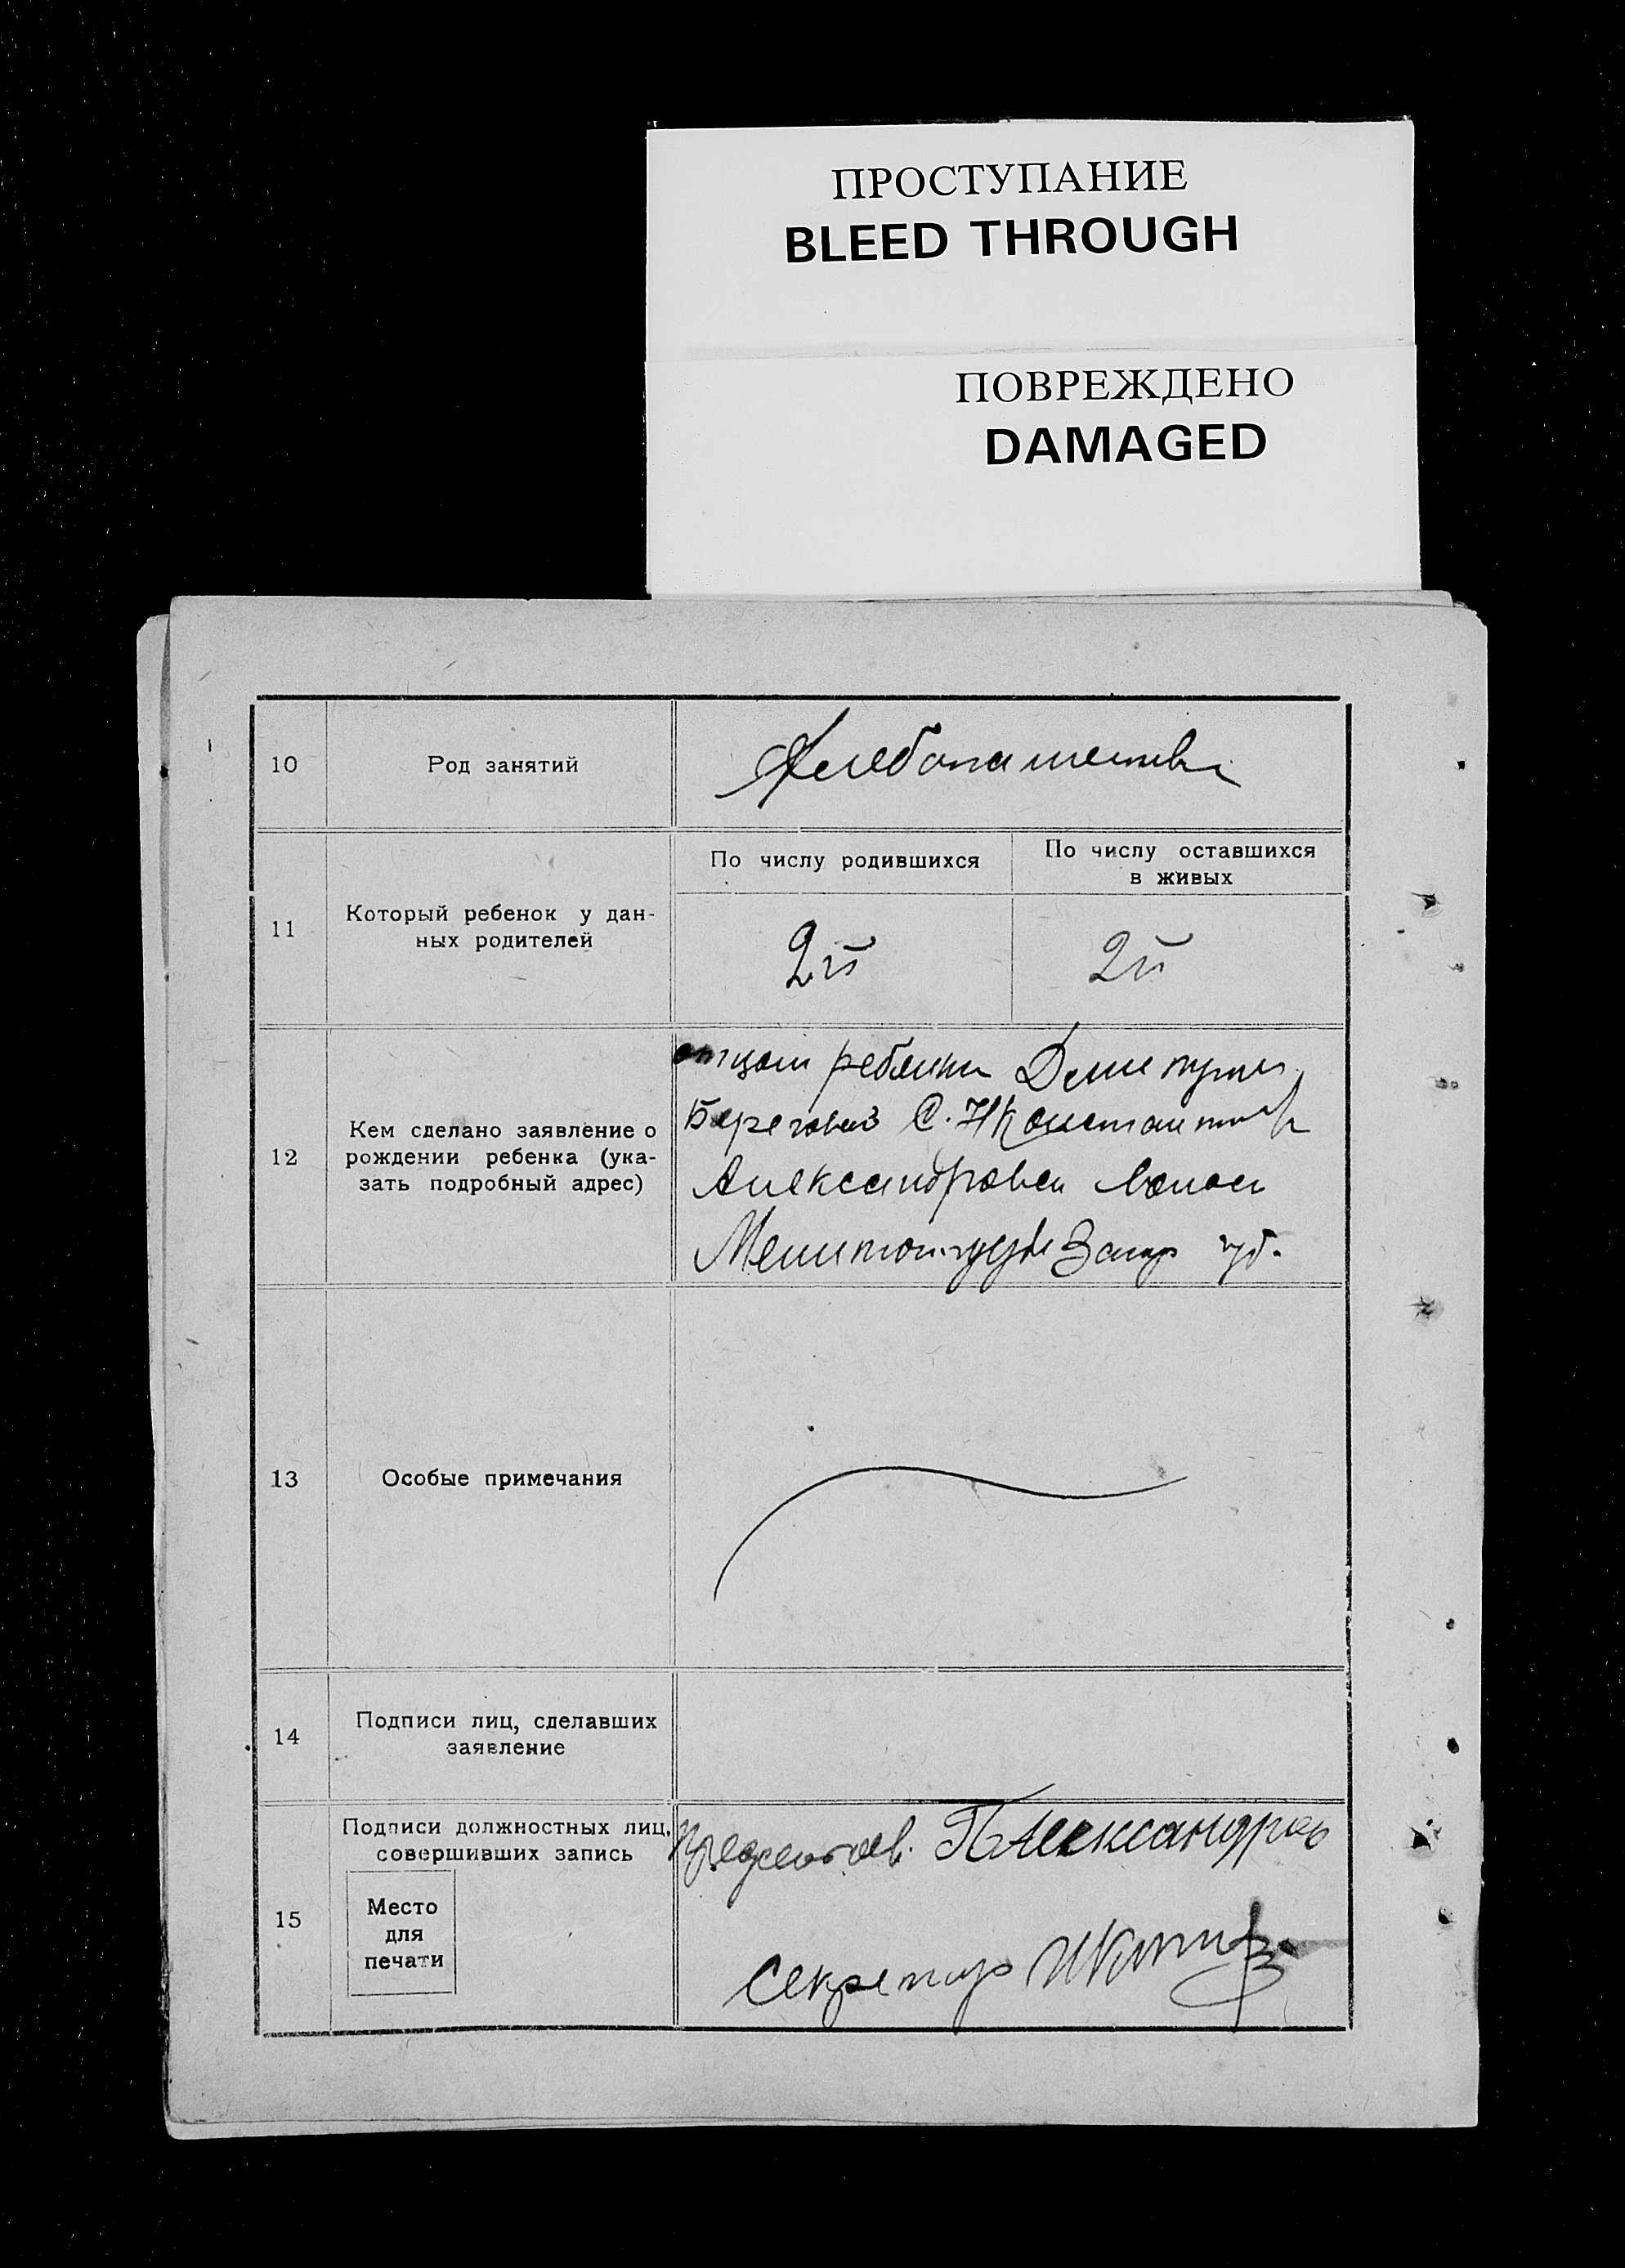 ПРОСТУПАНИЕ
BLEED THROUGH
ПОВРЕЖДЕНО
DAMAGED
10
Род занятий
Хлебопашество
11
Который ребенок у дан-
ных родителей
По числу родившихся
По числу оставшихся
в живых
2й
2й
12
Кем сделано заявление о
рождении ребенка (ука-
зать подробный адрес)
отцом ребенка
С. Н
Александровка
Запор губ.
13
Особые примечания
14
Подписи лиц, сделавших
заявление
15
Подписи должностных лиц,
совершивших запись
Место
для
печати
секретарь